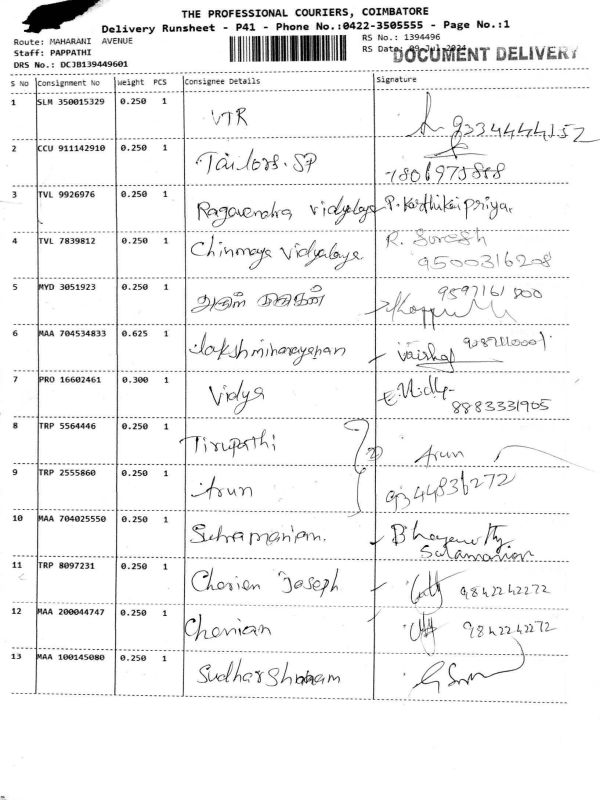 THE PROFESSIONAL COURIERS, COIMBATORE
Delivery Runsheet - P41 - Phone No.:0422-3505555 - Page No.:1
Route: MAHARANI AVENUE
RS No.: 1394496
Staff: PAPPATHI
RS Date: 09 Jul 2024
DOCUMENT DELIVERY
DRS No.: DCJB139449601
S No Consignment No Weight PCS Consignee Details Signature
1 SLM 350015329 0.250 1 VTR
2 CCU 911142910 0.250 1 Tailors. SP
3 TVL 9926976 0.250 1 Ragavendra Vidyalaya P. Karthikaipriya.
4 TVL 7839812 0.250 1 Chinmaya Vidyalaya R. Suresh
9500316208
5 MYD 3051923 0.250 1
6 MAA 704534833 0.625 1 Lakshminarayanan
7 PRO 16602461 0.300 1 Vidya
8883331905
8 TRP 5564446 0.250 1 Tirupathi Arun
9 TRP 2555860 0.250 1 Arun 9344836272
10 MAA 704025550 0.250 1 Subramaniam.
11 TRP 8097231 0.250 1 Cherien Joseph 9842242272
12 MAA 200044747 0.250 1 Cherian 9842242272
13 MAA 100145080 0.250 1 Sudharshanam